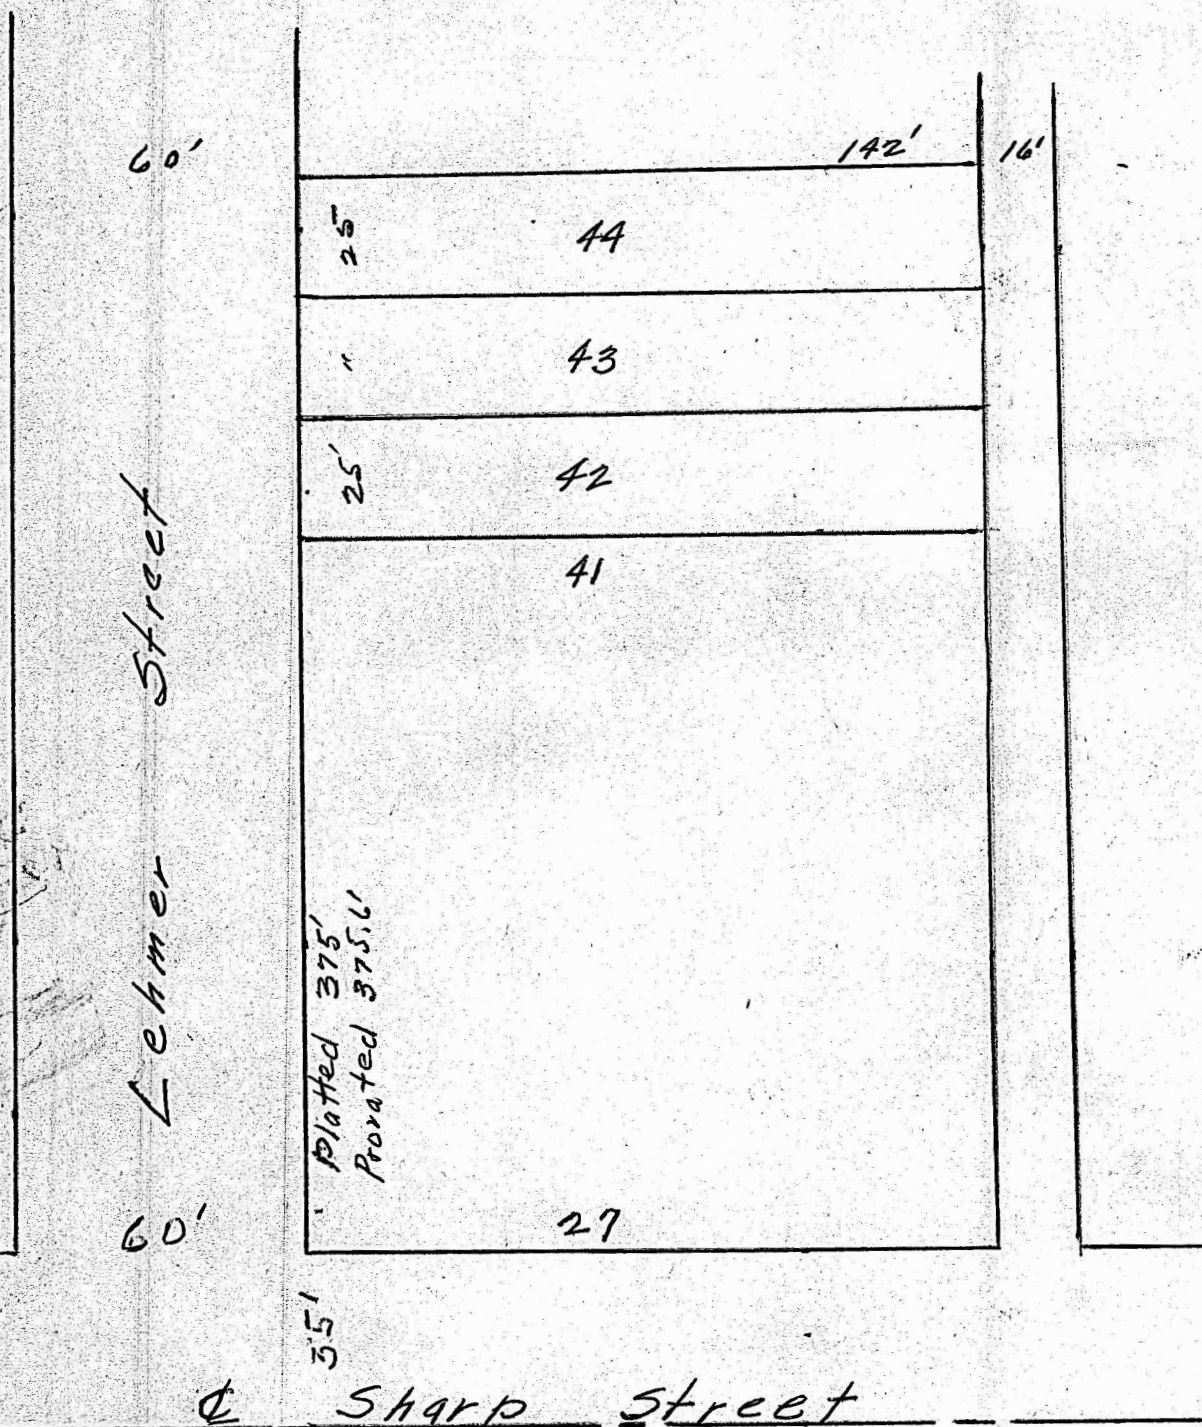 60'
142'
16'
25
44
"
43
25'
42
41
Lehmer Street
Platted 375'
Prorated 375.6'
60'
27
35'
℄ Sharp Street